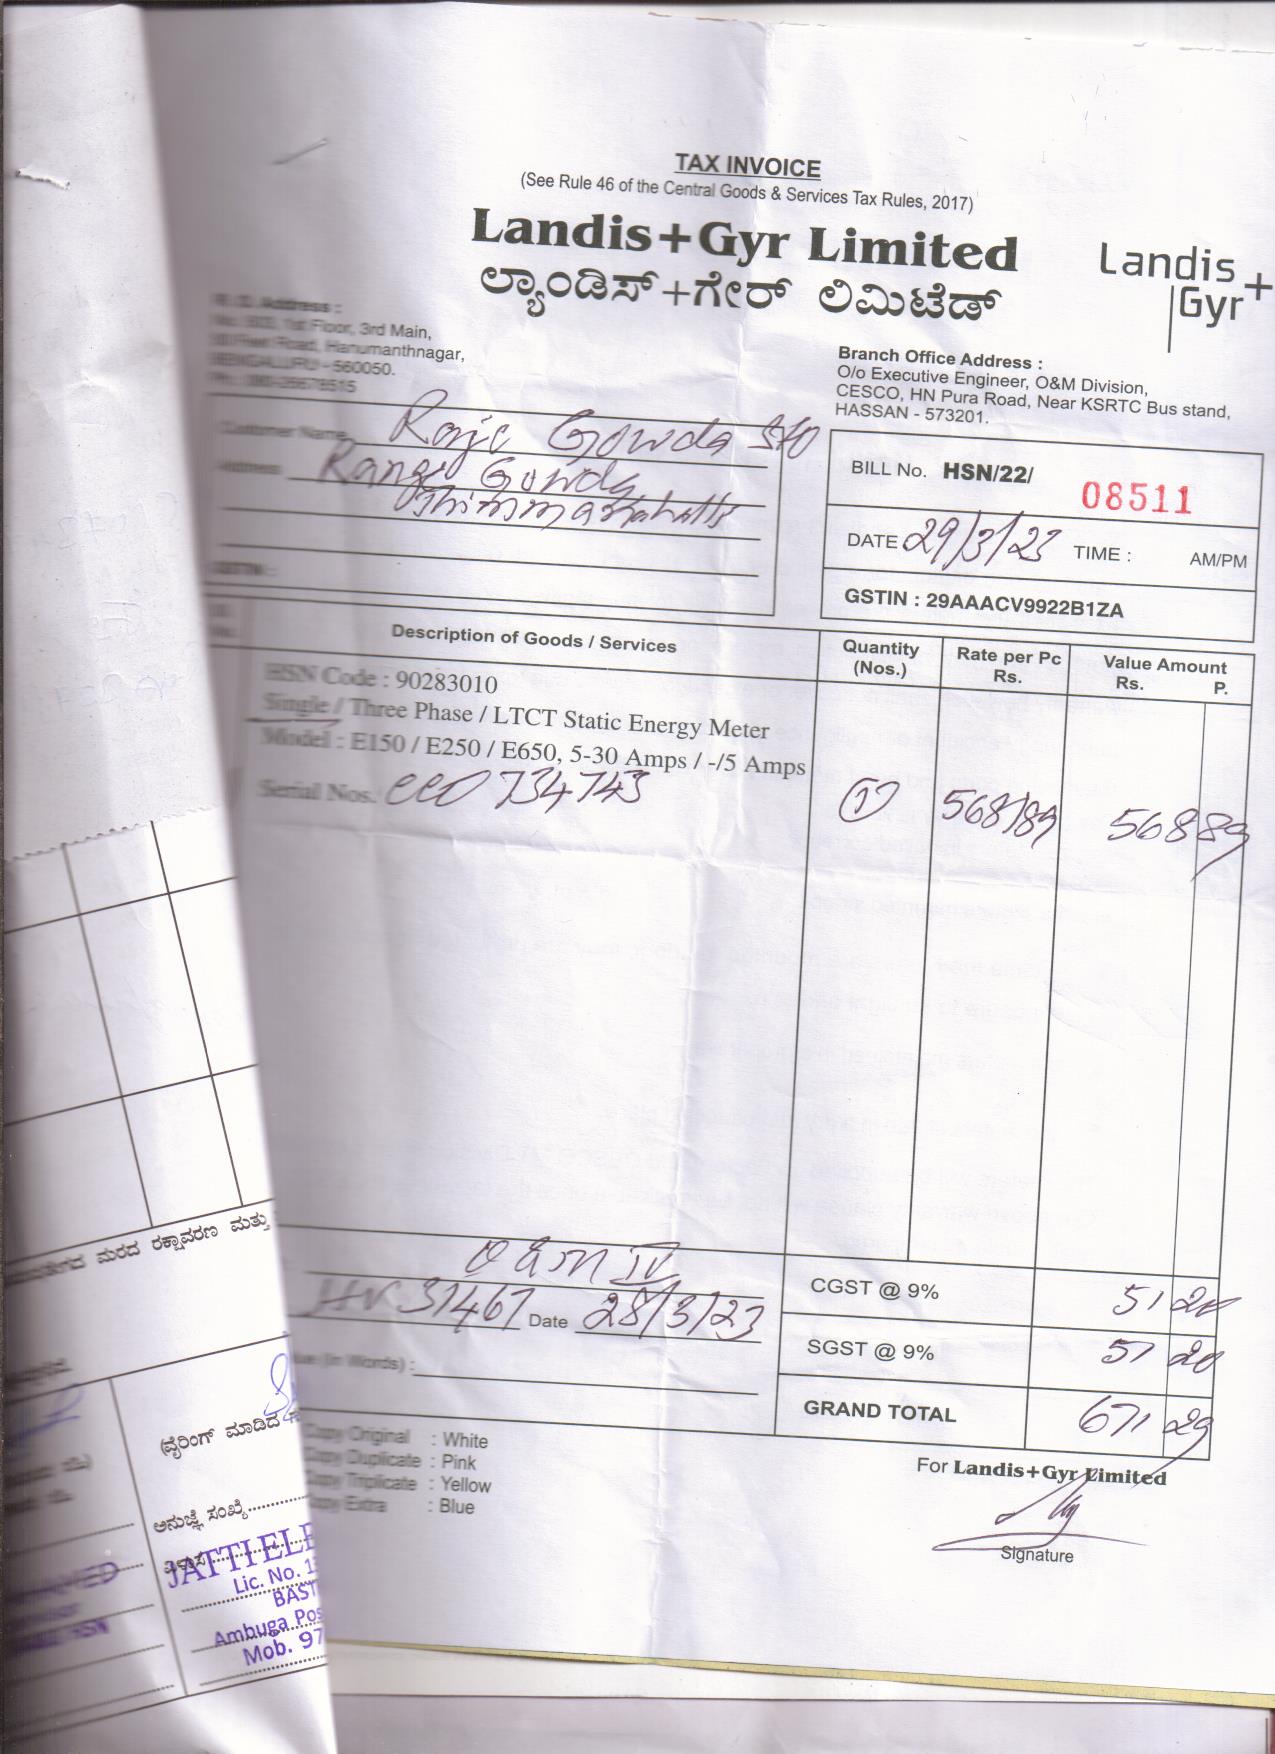 TAX INVOICE
(See Rule 46 of the Central Goods & Services Tax Rules, 2017)
Landis+Gyr Limited
ಲ್ಯಾಂಡಿಸ್+ಗೇರ್ ಲಿಮಿಟೆಡ್
Landis+
Gyr
Address :
1st Floor, 3rd Main,
Road, Hanumanthnagar,
BENGALURU - 560050.
Branch Office Address :
O/o Executive Engineer, O&M Division,
CESCO, HN Pura Road, Near KSRTC Bus stand,
HASSAN - 573201.
Customer Name Raje Gowda S/O
Address Range Gowda
GSTIN :
BILL No. HSN/22/ 08511
DATE 29/3/23 TIME : AM/PM
GSTIN : 29AAACV9922B1ZA
Description of Goods / Services
Quantity (Nos.)
Rate per Pc Rs.
Value Amount Rs. P.
HSN Code : 90283010
Single / Three Phase / LTCT Static Energy Meter
Model : E150 / E250 / E650, 5-30 Amps / -/5 Amps
Serial Nos. 734743 1 568/89 568 89
O&M IV
31467 Date 28/3/23
(In Words) :
CGST @ 9% 51 20
SGST @ 9% 51 20
GRAND TOTAL 671 29
Copy Original : White
Copy Duplicate : Pink
Copy Triplicate : Yellow
Copy Extra : Blue
For Landis+Gyr Limited
Signature
ಮರದ ರಕ್ಷಾವರಣ ಮತ್ತು
(ವೈರಿಂಗ್ ಮಾಡಿದ
ಅನುಜ್ಞೆ ಸಂಖ್ಯೆ
ವಿಳಾಸ
JATTI ELE
Lic. No. 1
BAST
Ambuga Pos
Mob. 97